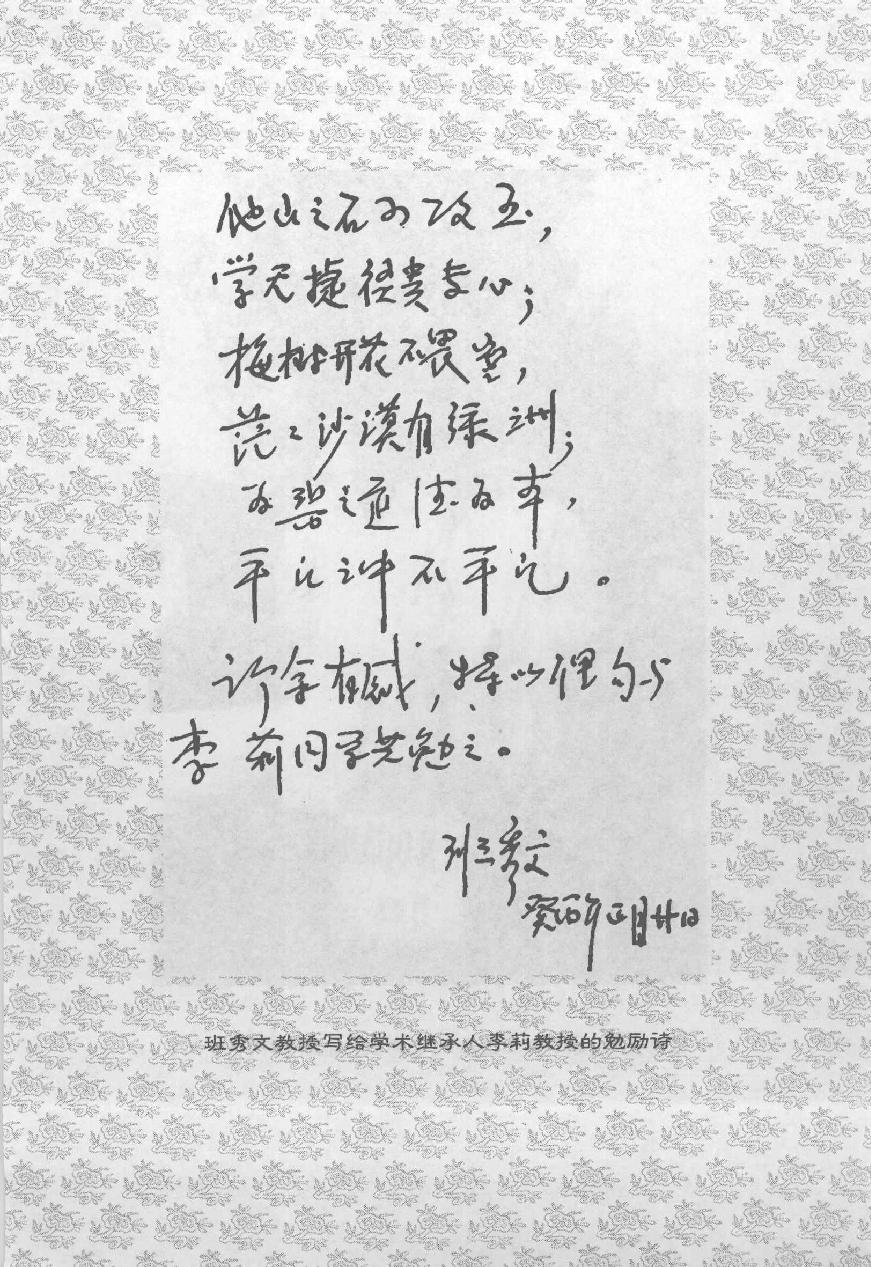 他山之石可攻玉，
学无捷径贵专心；
梅树开花不畏寒，
茫々沙漠有绿洲；
为医之道德为本，
平凡之中不平凡。
诊余有感，特以俚句与
李莉同学共勉之。
班秀文
癸酉年正月廿日
班秀文教授写给学术继承人李莉教授的勉励诗